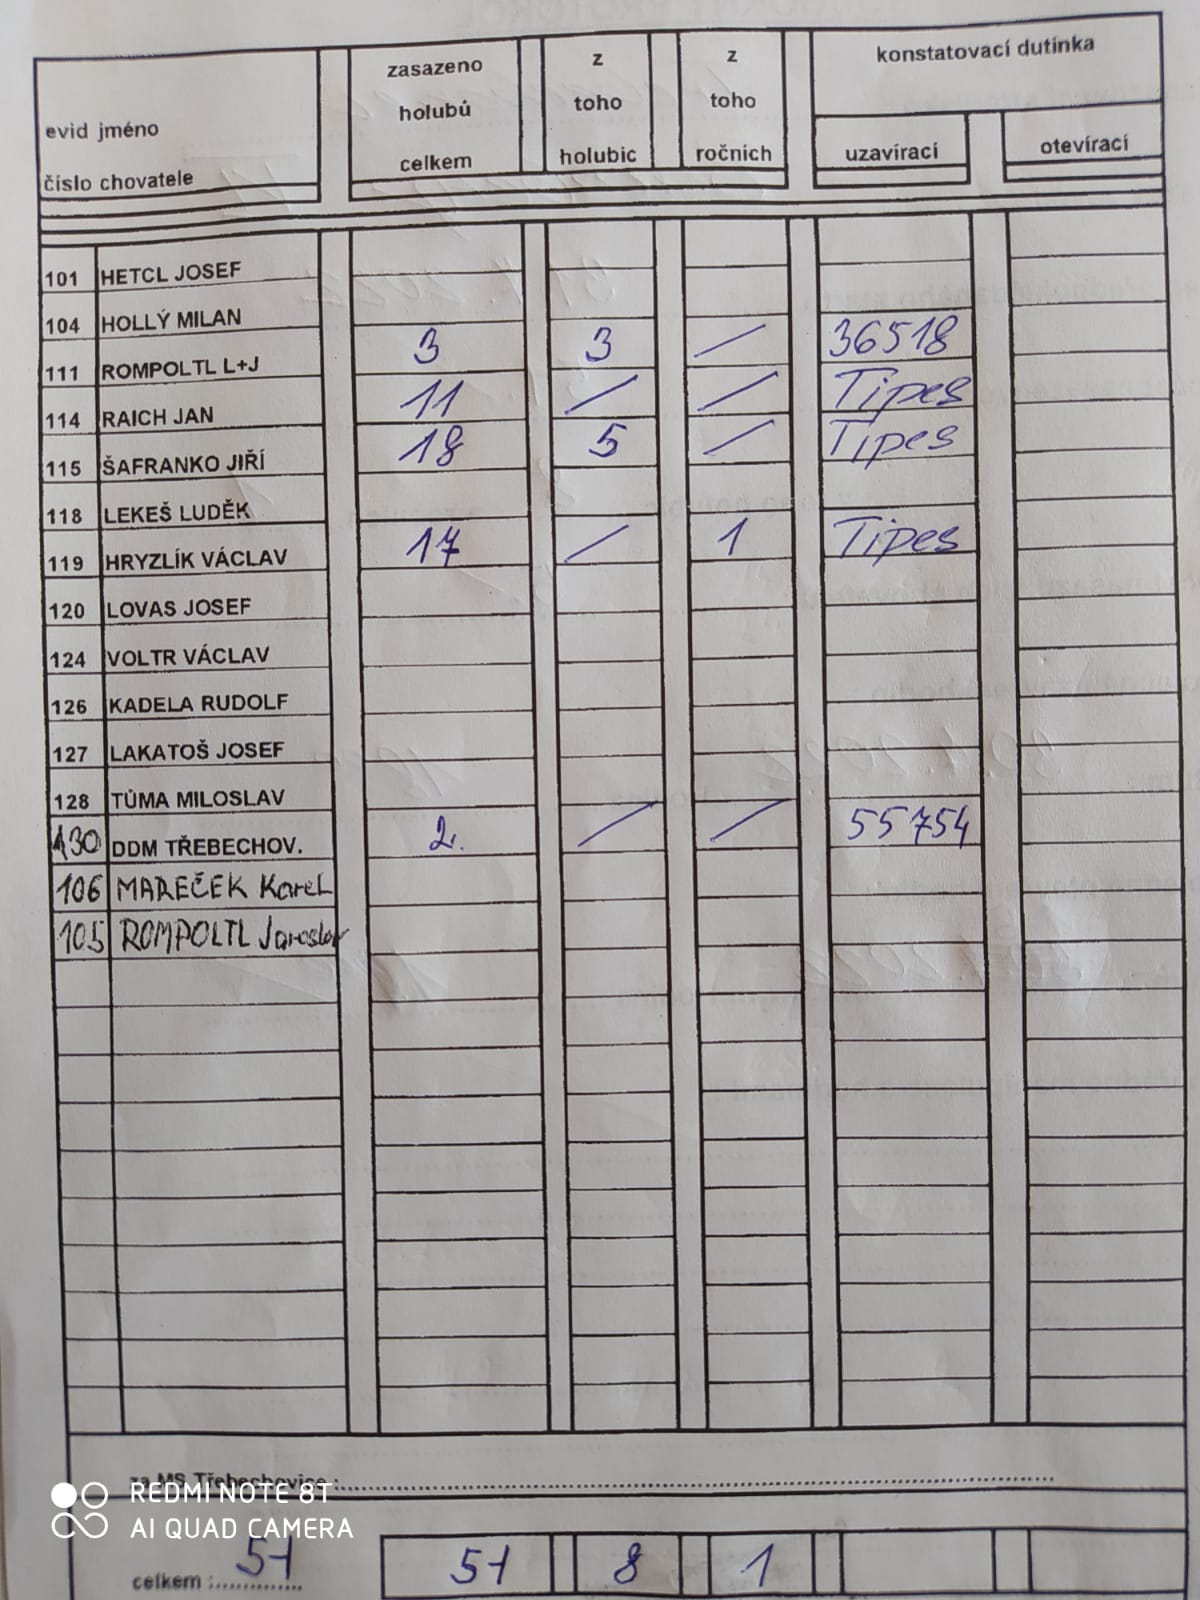 evid jméno
číslo chovatele
zasazeno
holubů
celkem
z
toho
holubic
z
toho
ročních
konstatovací dutinka
uzavírací
otevírací
101 HETCL JOSEF
104 HOLLÝ MILAN
111 ROMPOLTL L+J 3 3 / 36518
114 RAICH JAN 11 / / Tipes
115 ŠAFRANKO JIŘÍ 18 5 / Tipes
118 LEKEŠ LUDĚK
119 HRYZLÍK VÁCLAV 17 / 1 Tipes
120 LOVAS JOSEF
124 VOLTR VÁCLAV
126 KADELA RUDOLF
127 LAKATOŠ JOSEF
128 TŮMA MILOSLAV
130 DDM TŘEBECHOV. 2. / / 55754
106 MAREČEK Karel
105 ROMPOLTL Jaroslav
za MS Třebechovice :
REDMI NOTE 8T
AI QUAD CAMERA
celkem : 51 51 8 1